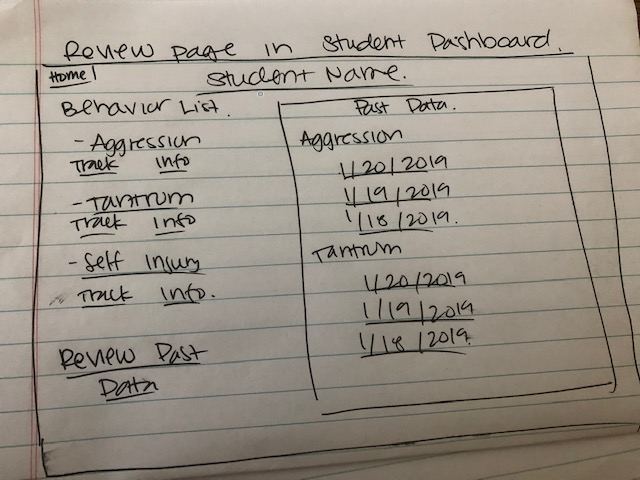 Review page in Student Dashboard.
Home
Student Name.
Behavior List.
- Aggression
Track Info
- Tantrum
Track Info
- Self Injury
Track Info.
Review Past
Data
Past Data.
Aggression
1/20/2019
1/19/2019
1/18/2019.
Tantrum
1/20/2019
1/19/2019
1/18/2019.